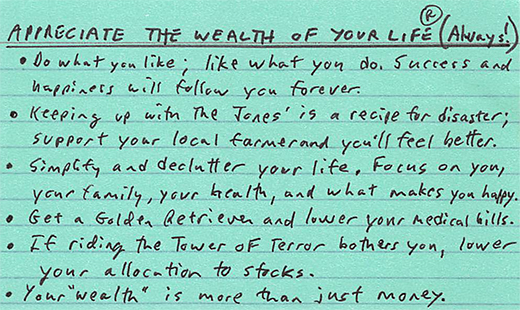 APPRECIATE THE WEALTH OF YOUR LIFE® (Always!)
• Do what you like; like what you do. Success and
happiness will follow you forever.
• Keeping up with The Jones' is a recipe for disaster;
support your local farmer and you'll feel better.
• Simplify and declutter your life. Focus on you,
your family, your health, and what makes you happy.
• Get a Golden Retriever and lower your medical bills.
• If riding the Tower of Terror bothers you, lower
your allocation to stocks.
• Your "wealth" is more than just money.